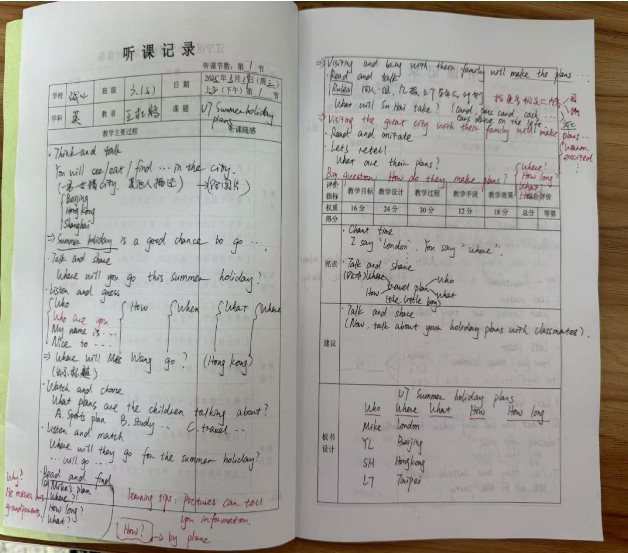 听课记录
听课节数：第 1 节
学校
班级 六(5)
日期
上午(下午)第 1 节
学科 英
教者
课题 U7 Summer holiday plans
教学主要过程
听课随感
· Think and talk
You will see/eat/find … in the city.
Beijing
Hong Kong
Shanghai
=> Summer holiday is a good chance to go …
· Talk and share
Where will you go this summer holiday?
· Listen and guess
Who How When What Where
Who are you
My name is …
Nice to …
=> Where will Wang go? (Hong Kong)
· Watch and choose
What plans are the children talking about?
A. Sports plan B. Study … C. travel …
· Listen and match
Where will they go for the summer holiday?
… will go …
· Read and find
① Mike's plan
Why?
He misses his grandparents
Where?
How long?
What?
learning tips: Pictures can tell
you information.
How? → by plane
=> Visiting and being with their family will make the plans …
· Read and talk
Rules
What will Su Hai take?
=> Visiting the great city with their family will make plans …
warm
excited
· Read and imitate
· Let's retell
What are their plans?
Big question: How do they make plans?
Where?
How long?
What?
评价指标 教学目标 教学设计 教学过程 教学手段 教学效果 评价
权重 16分 24分 30分 12分 18分 总分 等第
得分
亮点
· Chant time
I say "London". You say "where".
· Talk and share
Where Who
How travel plan What
(the little boy)
建议
· Talk and share
(Now, talk about your holiday plans with classmates).
板书设计
U7 Summer holiday plans
Who Where What How How long
Mike London
YL Beijing
SH Hongkong
LT Taipei